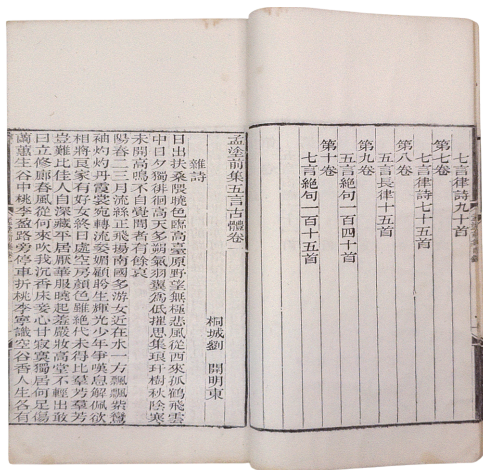 七言律詩九十首
第七卷
七言律詩七十五首
第八卷
五言長律十五首
第九卷
五言絶句一百四十首
第十卷
七言絶句一百十五首
孟塗前集五言古體卷一
桐城劉 開明東
雜詩
日出扶桑隈曉色臨高臺原野望無極悲風從西來孤鶴飛雲
中日夕獨徘徊高天多朔氣羽翼為低摧思集琅玕樹秋陰寒
未開高鳴不自覺聞者有餘哀
陽春二三月流絲正飛揚南國多游女近在水一方飄飄紫鸞
袖灼灼丹霞裳宛轉流媚顧盼生輝光少年爭嘆息解佩欲
相將良家好女終日處空房顏色雖絶代未得比羣芳羣芳
豈難比佳人自深藏平居厭華服曉起羞嚴妝高堂不輕出敢
曰立修廊春風從何來吹我沉香床妾心甘寂寞獨居何足傷
蘭蕙生谷中桃李盈路旁停車折桃李寧識空谷香人生各有